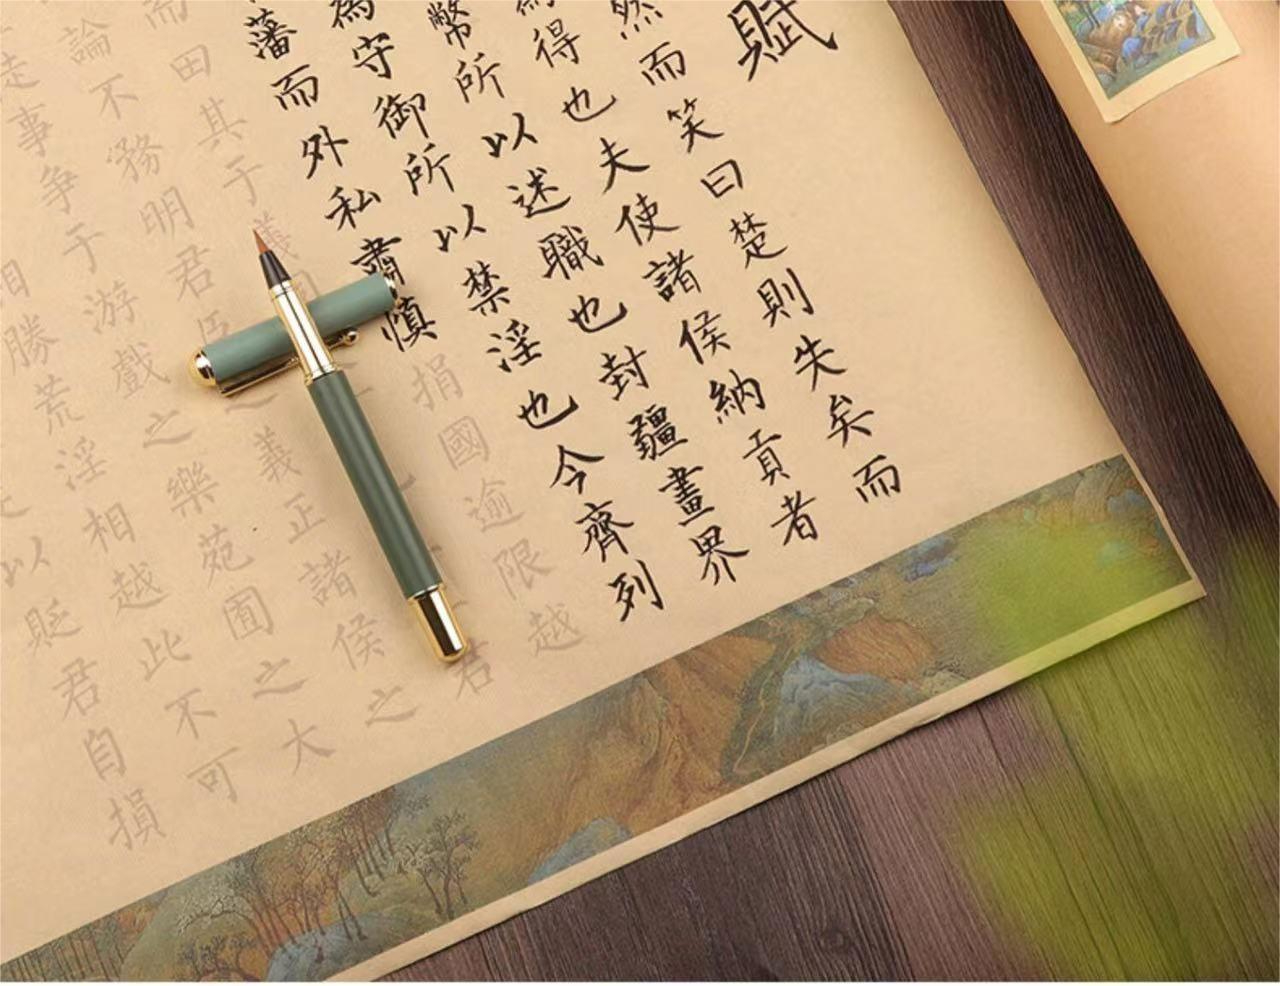 賦
然而笑曰楚則失矣而
為得也夫使諸侯納貢者
幣所以述職也封疆畫界
為守御所以禁淫也今齊列
藩而外私肅慎捐國逾限越
而田其于義固也君
論不務明君臣之義正諸侯之
事爭于游戲之樂苑囿之大
相勝荒淫相越此不可
以貶君自損